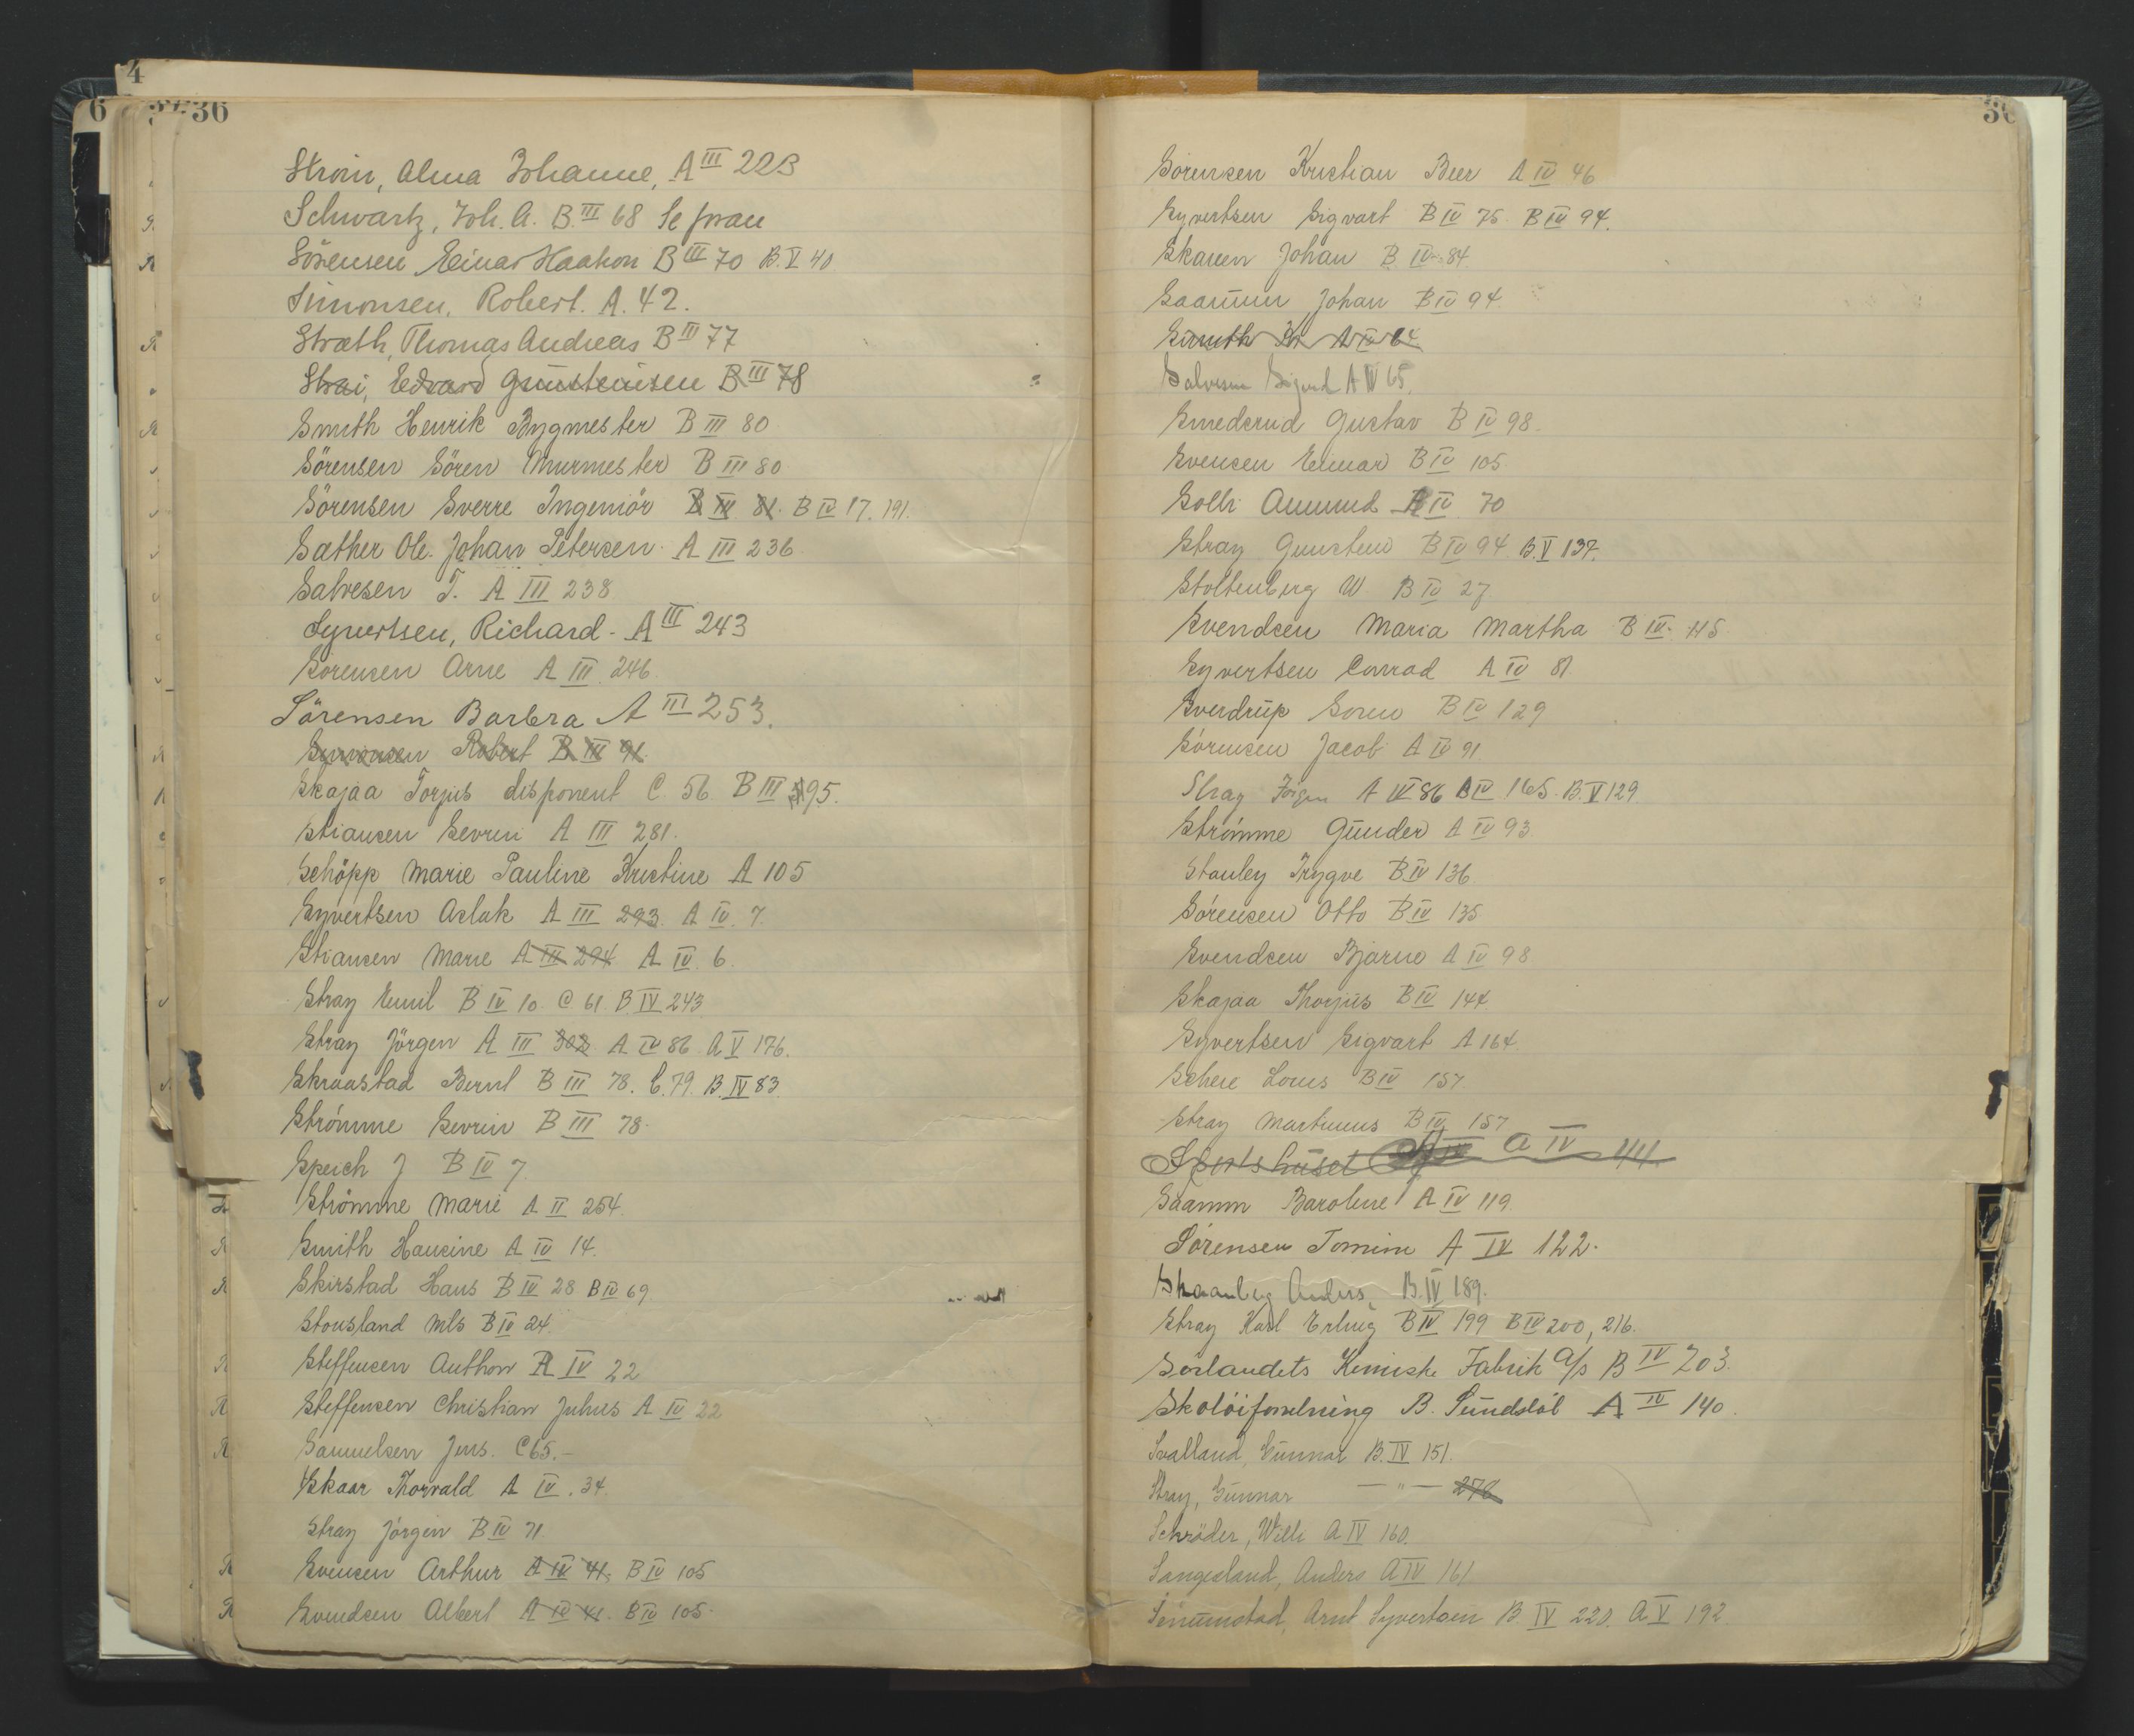 4
6
36
Strøm, Alma Johanne, A III 223
Schwartz, Joh. A. B. III 68 Se foran
Sörensen Einar Haakon B III 70 B. V 40
Simonsen, Robert. A. 42.
Stræth, Thomas Andreas B III 77
Strai, Edvard Gunsteinsen B III 78
Smith Henrik Bygmester B III 80
Sörensen Sören Murmester B III 80
Sörensen Sverre Ingeniör B III 81. B IV 17. 191.
Sæther Ole Johan Petersen. A III 236
Salvesen T. A III 238
Syvertsen, Richard - A III 243
Sörensen Arne A III 246.
Sörensen Barbra A III 253.
Simonsen Robert B III 91.
Skajaa Torjus disponent C. 56 B III 195.
Stiansen Sevrin A III 281.
Schöpp Marie Pauline Kristine A 105
Syvertsen Aslak A III 293. A IV. 7.
Stiansen Marie A III 294 A IV. 6.
Stray Emil B IV 10. C 61. B IV 243
Stray Jörgen A III 302 A IV 86. A V 176.
Skraastad Bernt B III 78. C. 79. B. IV 83.
Strömme Sevrin B III 78.
Speich J B IV 7.
Strömme Marie A II 254.
Smith Hansine A IV 14.
Skirstad Hans B IV 28 B IV 69.
Stousland Mls B IV 24.
Steffensen Anthon A IV 22
Steffensen Christian Julius A IV 22
Samuelsen Jens. C 65.-
Skaar Thorvald A IV. 34.
Stray Jörgen B IV 71.
Svensen Arthur A IV 41, B IV 105
Svendsen Albert A IV 41. B IV 105.
Sörensen Kristian Beer A IV 46
Syvertsen Sigvart B IV 75. B IV 94.
Skauen Johan B IV 84.
Saamun Johan B IV 94.
Smith Kr A IV 64
Salvesen Sigurd A IV 65.
Smedsrud Gustav B IV 98.
Svensen Einar B IV 105.
Solli Amund A IV 70
Stray Gunstein B IV 94. B. V 137.
Stoltenberg W B IV 27.
Svendsen Maria Martha B IV 115
Syvertsen Conrad A IV 81.
Sverdrup Sören B IV 129
Sörensen Jacob A IV 91
Stray Jörgen A IV 86 B IV 165. B. V 129
Strömme Gunder A IV 93
Stanley Trygve B IV 136.
Sörensen Otto B IV 135.
Svendsen Bjarne A IV 98
Skajaa Thorjus B IV 147
Syvertsen Sigvart A 164.
Schere Louis B IV 157.
Stray Martinius B IV 157
Sportshuset A IV 44.
Saamm Baroline A IV 119.
Sörensen Tomine A IV 122.
Skaanberg Anders, B. IV 189.
Stray Karl Erling B IV 199 B IV 200, 216.
Sørlandets Kemiske Fabrik A/S B IV 203.
Skotöiforretning B. Sundsdöl A IV 140.
Svalland, Gunnar B. IV 151.
Stray, Gunnar — " — 278
Schröder, Willi A IV 160.
Sangesland, Anders A IV 161
Sinnustad, Arnt Syvertsen B. IV 220. A V 192.